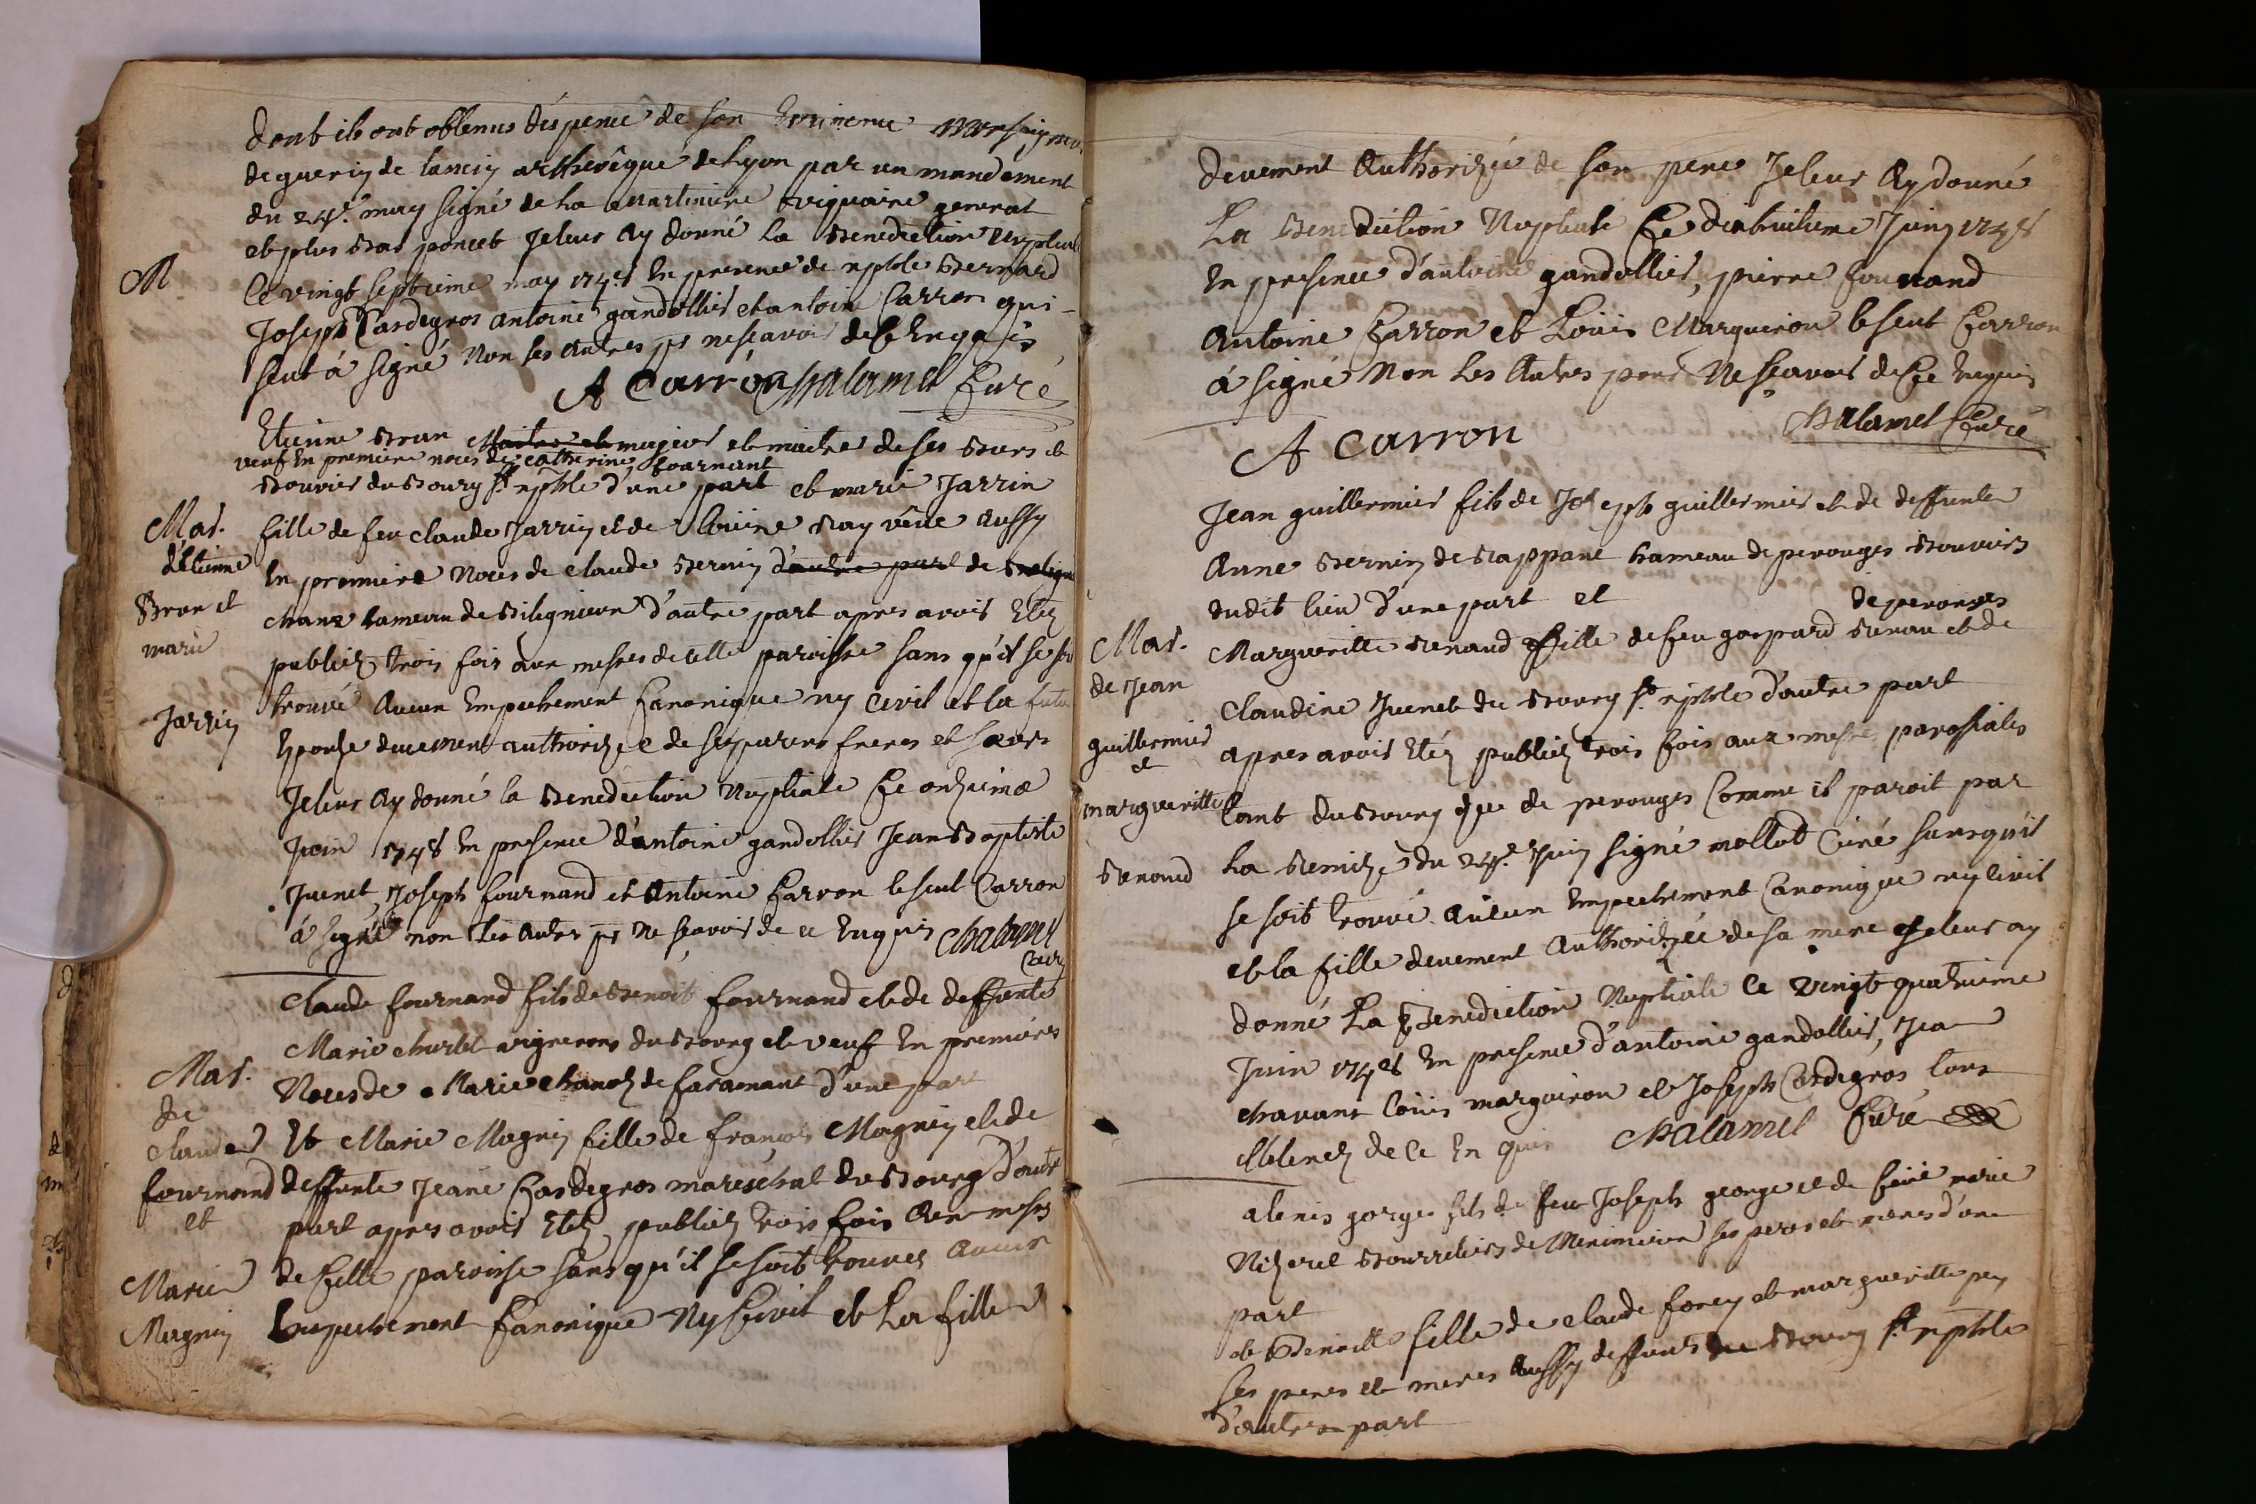 dont ils ont obtenus dispence de son Eminence Monseigneur
de guerin de tancin archevêque de Lyon par un mandement
du 24e. may signé de La Martiniere viquaire general
et plus Bas poncet Jeleur Ay donné La Benediction Nuptiale
M
Ce vingt septieme may 1748 En presence de
Bernard
Joseph Cardegros antoine gandollier et antoine Carron qui
seul á signé Non Les Autres pr ne scavoir de Ce Enquis
A Carron Chalamel Curé
Etienne Bron Maitre et majeur et maitre de ses Biens et
veuf En premiere noces de Catherine fournant
Bouvier du Bourg St. d'une part et marie Jarrin
Mar.
d'Etienne
Bron et
marie
Jarrin
fille de feu claude Jarrin et de Loüise Ray vêue Aussy
En premiere Noces de claude Bernin d'autre part de
chanz hameau de Bilignieux d'autre part apres avoir Etez
publiez trois fois aux messes de Celle paroisse sans qu'il se soit
trouvé Aucun Empechement Canonique ny Civil et la future
Epouse duement authorizée de ses parens freres et sœurs
Jeleur Ay donné la Benediction Nuptiale Ce onzieme
Juin 1748 En presence d'antoine gandollier Jean Baptiste
Juenet, Joseph fournand et Antoine Carron le seul Carron
á signé non Les Autres pr Ne scavoir de ce Enquis Chalamel
Curé
Claude fournand fils de Benoit fournand et de deffunte
Marie churlet vigneron du Bourg et veuf En premieres
Noces de Marie chanel de faramant d'une part
Mar.
de
claude
fournand
et
Marie
Magnin
Et Marie Magnin fille de françois Magnin et de
deffunte Jeane Cardegros maréschal du Bourg D'autre
part apres avoir Etez publiez trois fois Aux messes
de Celle paroisse sans qu'il se soit trouvez Aucun
Empechement Canonique Ny Civil et La fille
Devement Authorizée de son pere Jeleur Ay donné
La Benediction Nuptiale Ce dixhuitieme Juin 1748
En presence d'antoine gandollier, pierre fournand
Antoine Carron et Loüis Marguiron le seul Carron
á signé Non Les Autres pour Ne scavoir de Ce Enquis
A Carron
Chalamel Curé
Jean guillermier fils de Joseph guillermier et de deffunte
Anne Bernin de Rappane hameau de perouges Bouvier
dudit lieu d'une part et
de perouges
Mar.
de Jean
guillermier
et
margueritte
Renaud
Margueritte Renaud fille de feu gaspard Renau et de
Claudine Juenet du Bourg St. d'autre part
apres avoir Etéz publiez trois fois aux messes parossiales
tant du Bourg que de perouges Comme il paroit par
La Remize du 24e. Juin signé mollat Curé sans qu'il
se soit trouvé Aucun Empechement Canonique ny Civil
et la fille devement Authorizée de sa mere Jeleur ay
donné La Benediction Nuptiale Ce vingt quatrieme
Juin 1748 En presence d'antoine gandollier, Jean
chavant Loüis marguiron et Joseph Cardegros tous
illeterez de Ce En quis Chalamel Curé
alexis gorge fils de feu Joseph george et de feüe marie
Nizerel Bourrelier de Meximieux ses pere et meres d'une
part
et Benoitte fille de claude forey et margueritte pey
ses peres et meres Aussy deffunts du Bourg St
d'autre part